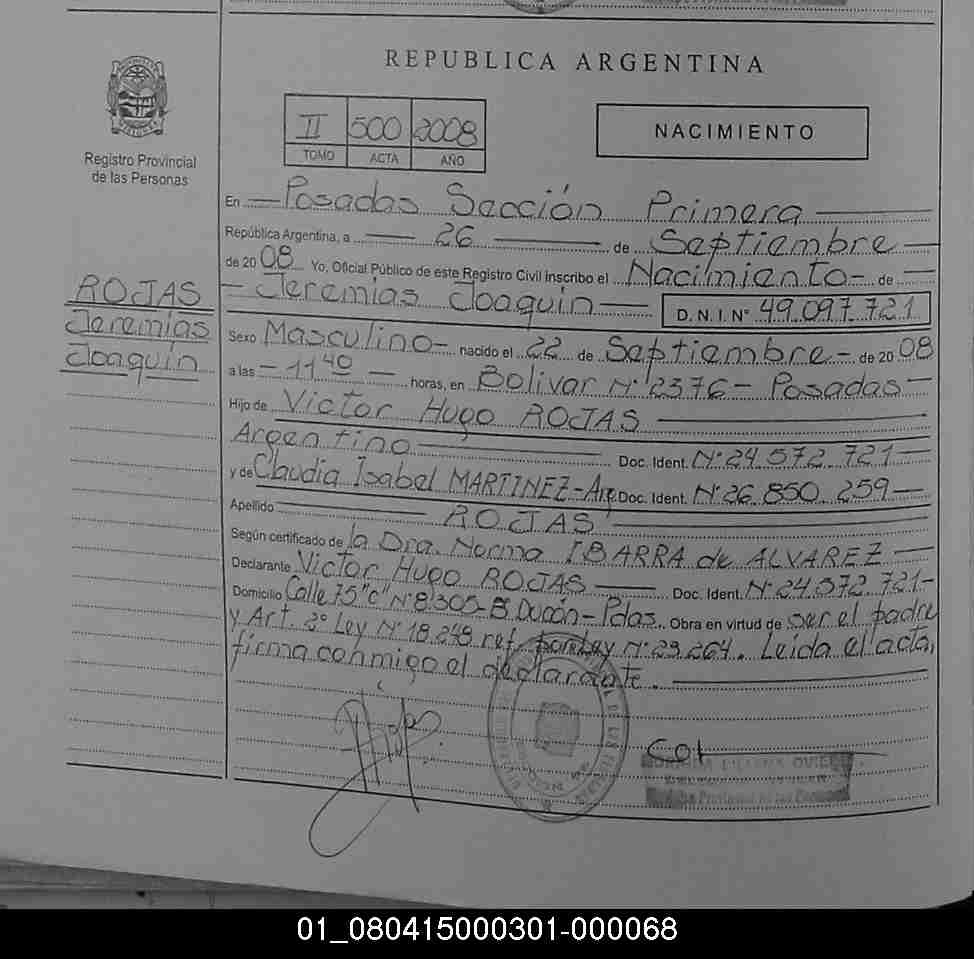 REPUBLICA ARGENTINA
II 500 2008
TOMO ACTA AÑO
NACIMIENTO
MISIONES
Registro Provincial
de las Personas
En Posadas Sección Primera
República Argentina, a 26 de Septiembre
de 2008 Yo, Oficial Público de este Registro Civil inscribo el Nacimiento de
ROJAS
Jeremías
Joaquín
Jeremías Joaquín D.N.I. Nº 49.097.721
Sexo Masculino nacido el 22 de Septiembre de 2008
a las 11 40 horas, en Bolivar Nº 2376 - Posadas
Hijo de Victor Hugo ROJAS
Argentino Doc. Ident. Nº 24.572.721
y de Claudia Isabel MARTINEZ - Arg. Doc. Ident. Nº 26.850.259
Apellido ROJAS
Según certificado de la Dra. Norma IBARRA de ALVAREZ
Declarante Victor Hugo ROJAS Doc. Ident. Nº 24.572.721
Domicilio Calle 75 "C" Nº 8.305 - Bº - Pdas. Obra en virtud de ser el padre
y Art. 2º Ley Nº 18.248 ref. por Ley Nº 23.264. Leída el acta,
firma conmigo el declarante.
OVIEDO
01_080415000301-000068